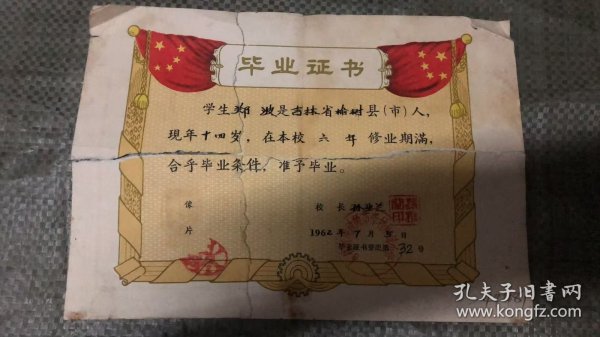 毕业证书
学生郑波是吉林省榆树县(市)人,
现年十四岁,在本校六年修业期满,
合乎毕业条件,准予毕业。
像
片
校长
1962年7月5日
毕业证书登记第32号
孔夫子旧书网
www.kongfz.com